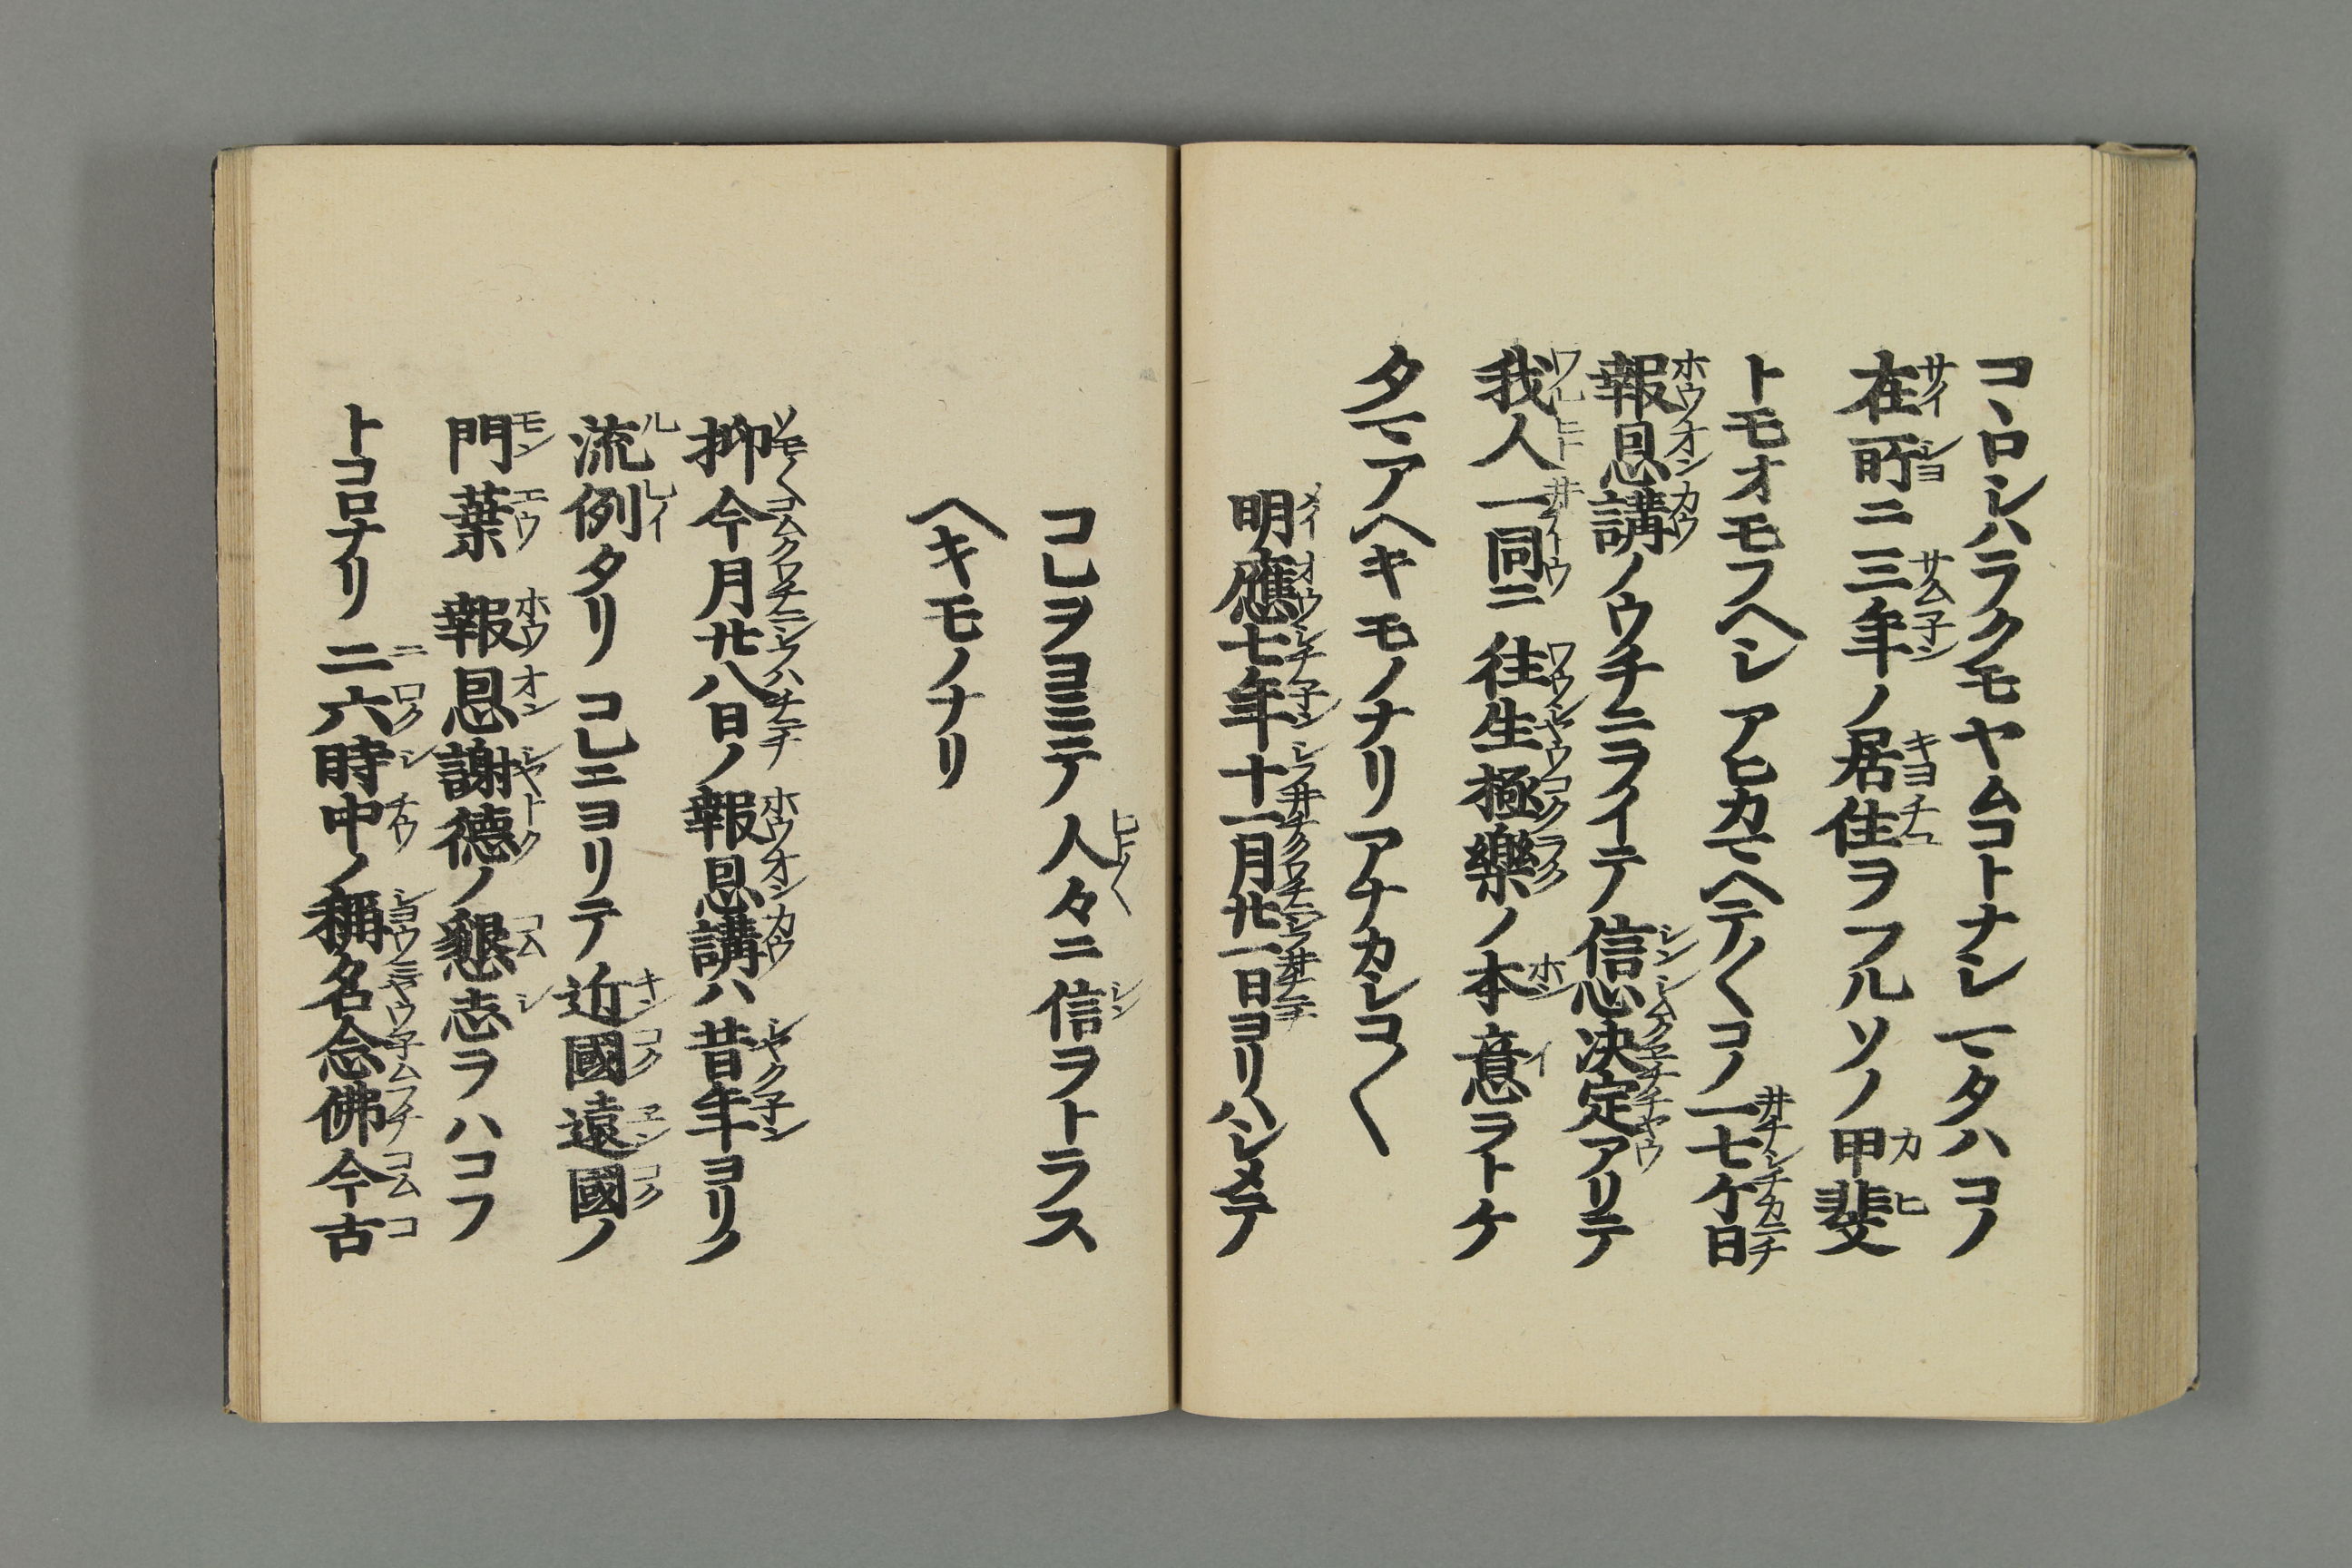 コヽロシハラクモヤムコトナシマタハコノ
在所ニ三年ノ居住ヲフルソノ甲斐
トモオモフヘシアヒカマヘテ〳〵コノ一七ケ日
報恩講ノウチニヲイテ信心决定アリテ
我人一同ニ往生極樂ノ本意ヲトケ
タマフヘキモノナリアナカシコ〳〵
明應七年十一月廿一日ヨリハシメテ
コレヲヨミテ人々ニ信ヲトラス
ヘキモノナリ
抑今月廿八日ノ報恩講ハ昔年ヨリノ
流例タリコレニヨリテ近國遠國ノ
門葉報恩謝德ノ懇志ヲハコフ
トコロナリ二六時中ノ稱名念佛今古